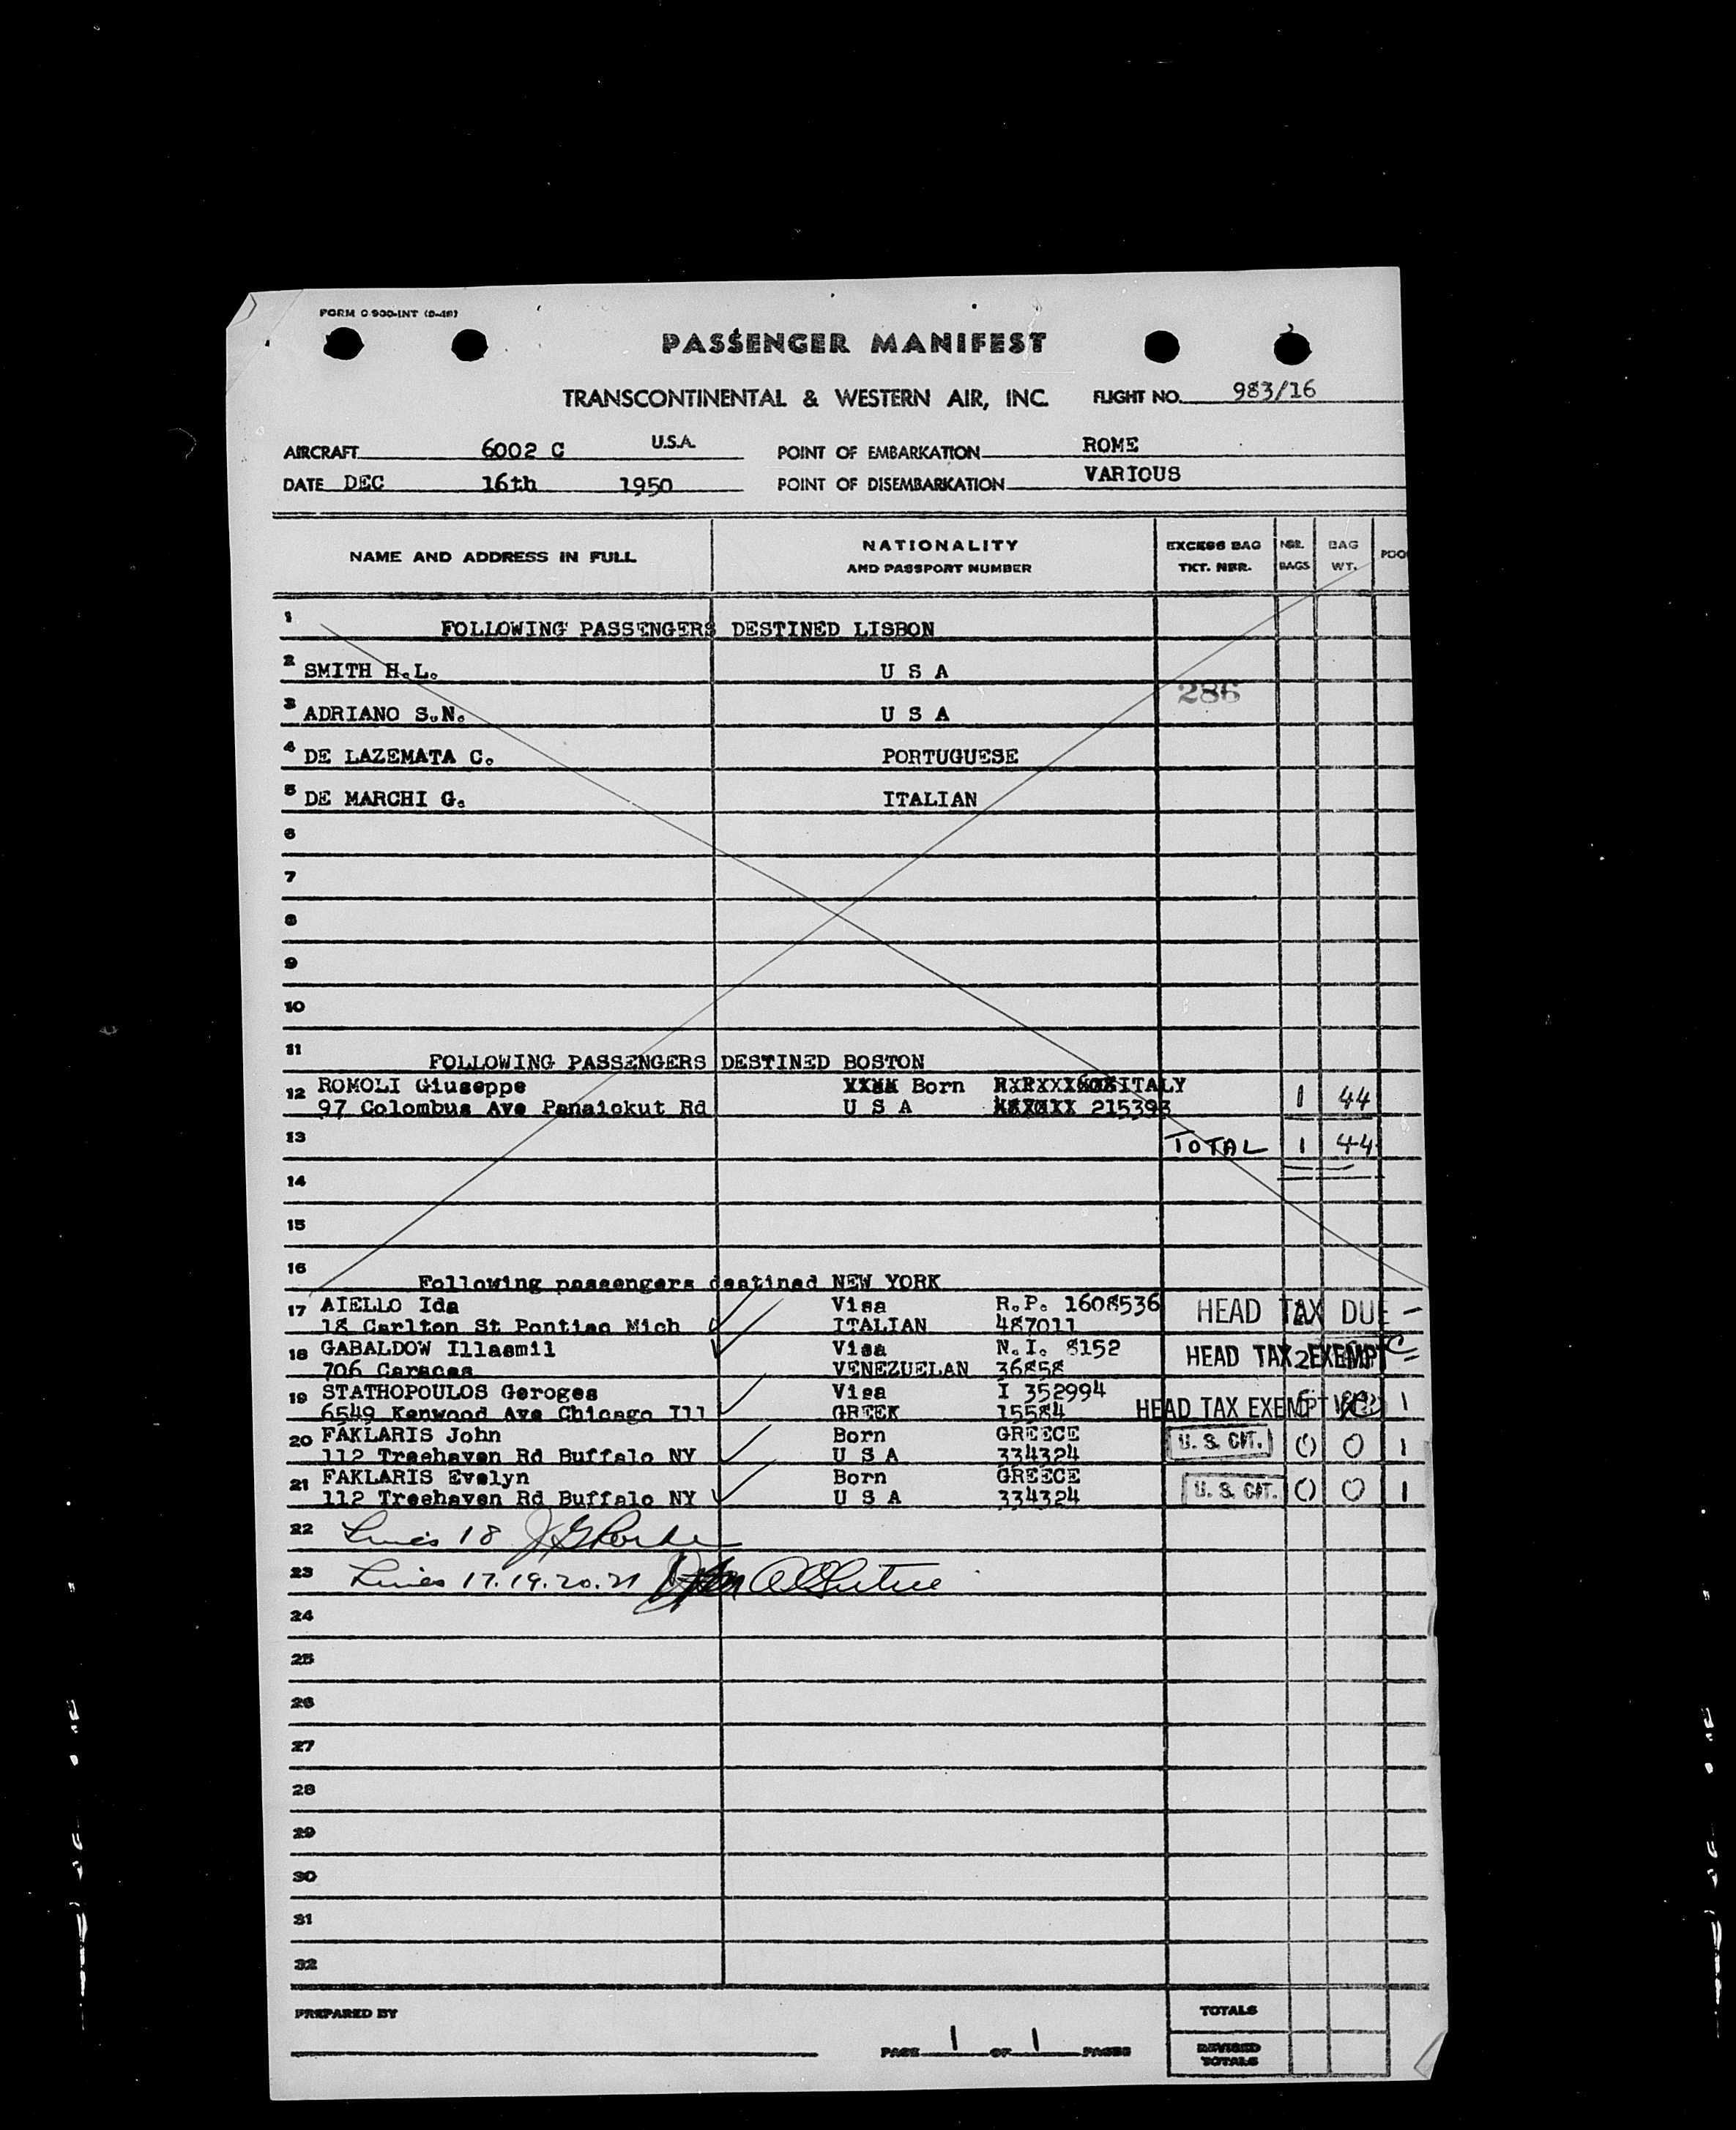 FORM O 900-INT (9-48)
PASSENGER MANIFEST
TRANSCONTINENTAL & WESTERN AIR, INC. FLIGHT NO. 983/16
AIRCRAFT 6002 C U.S.A. POINT OF EMBARKATION ROME
DATE DEC 16th 1950 POINT OF DISEMBARKATION VARIOUS
NAME AND ADDRESS IN FULL NATIONALITY AND PASSPORT NUMBER EXCESS BAG TKT. NBR. NBR. BAGS BAG WT.
1 FOLLOWING PASSENGERS DESTINED LISBON
2 SMITH H.L. U S A
286
3 ADRIANO S.N. U S A
4 DE LAZEMATA C. PORTUGUESE
5 DE MARCHI G. ITALIAN
6
7
8
9
10
11 FOLLOWING PASSENGERS DESTINED BOSTON
12 ROMOLI Giuseppe Born ITALY
97 Colombus Ave Panaiokut Rd U S A 215393 1 44
13 TOTAL 1 44
14
15
16 Following passengers destined NEW YORK
17 AIELLO Ida Visa R.P. 1608536 HEAD TAX DUE
18 Carlton St Pontiac Mich ITALIAN 487011
18 GABALDOW Illasmil Visa N.I. 8152 HEAD TAX EXEMPT
706 Caracas VENEZUELAN 36858
19 STATHOPOULOS Geroges Visa I 352994 HEAD TAX EXEMPT 1
6549 Kenwood Ave Chicago Ill GREEK 15584
20 FAKLARIS John Born GREECE U. S. CIT. 0 0 1
112 Treehaven Rd Buffalo NY U S A 334324
21 FAKLARIS Evelyn Born GREECE U. S. CIT. 0 0 1
112 Treehaven Rd Buffalo NY U S A 334324
22 Lines 18
23 Lines 17.19.20.21
24
25
26
27
28
29
30
31
32
PREPARED BY TOTALS
PAGE 1 OF 1 PAGES REVISED TOTALS